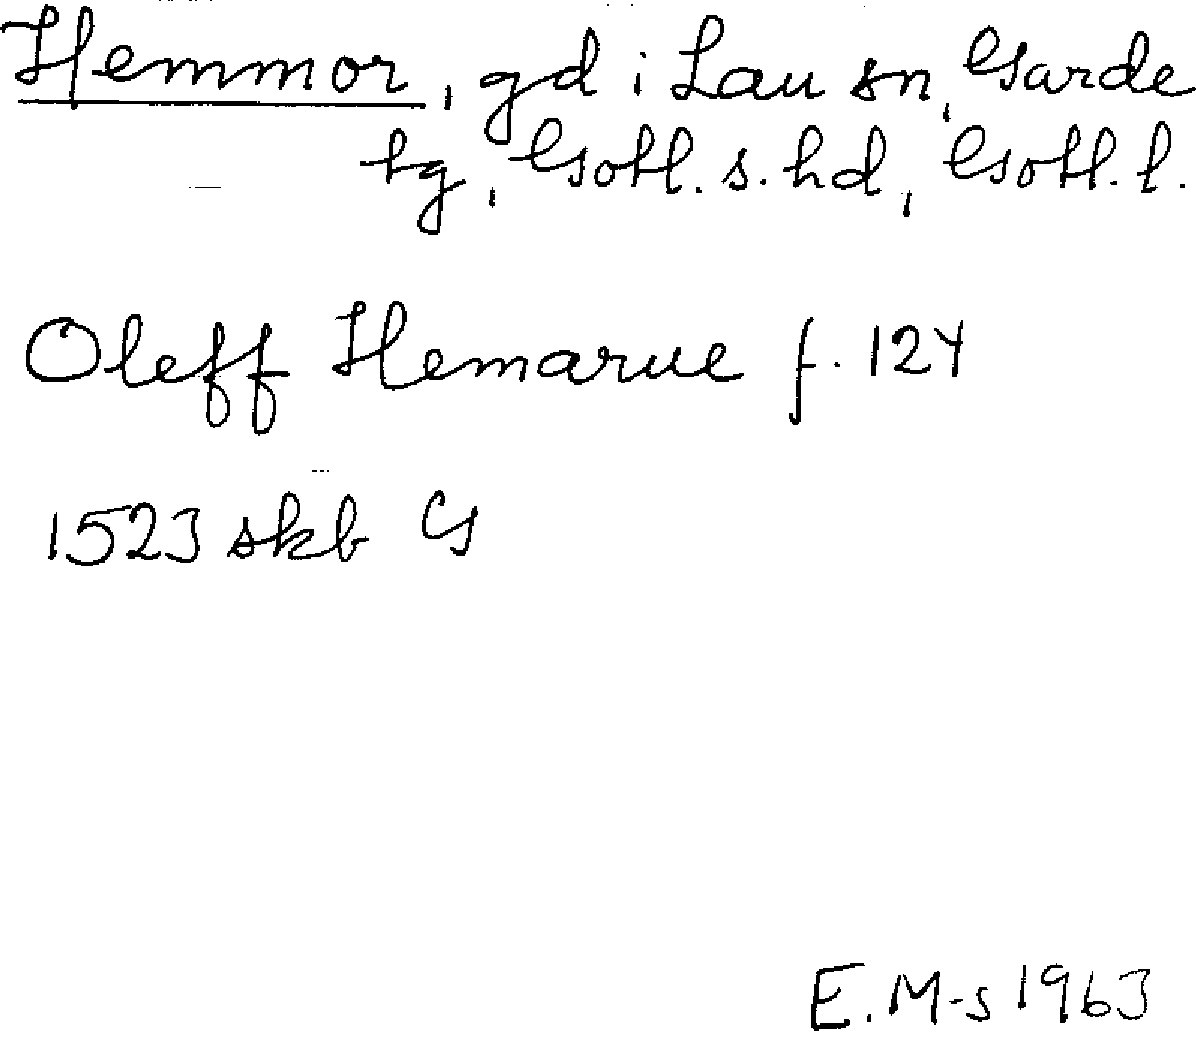 Hemmor, gd i Lau sn, Garde
tg, Gotl. s. hd, Gotl. l.
Oleff Hemarue f. 124
1523 skb G
E. M-s 1963